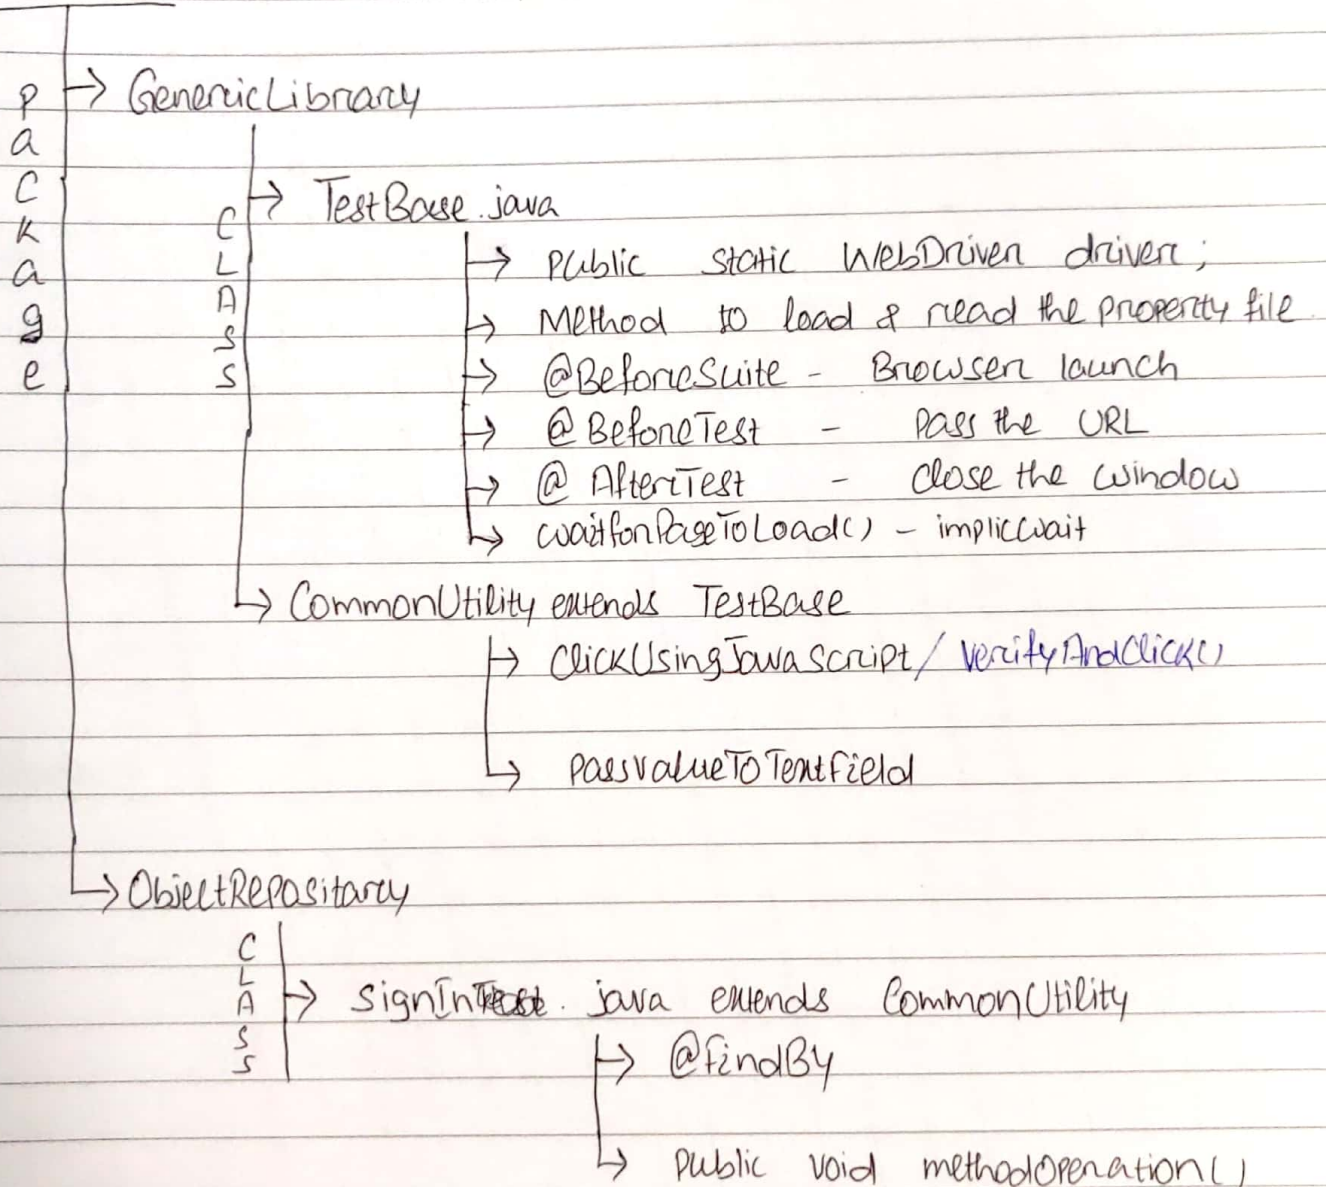 Package
GenericLibrary
CLASS
TestBase.java
Public static WebDriver driver;
Method to load & read the property file
@BeforeSuite - Browser launch
@BeforeTest - Pass the URL
@AfterTest - Close the window
waitforPageToLoad() - implicwait
CommonUtility extends TestBase
ClickUsingJavaScript / verifyAndClick()
passvalueToTextfield
ObjectRepositary
CLASS
SignIn . java extends CommonUtility
@findBy
public void methodoperation()